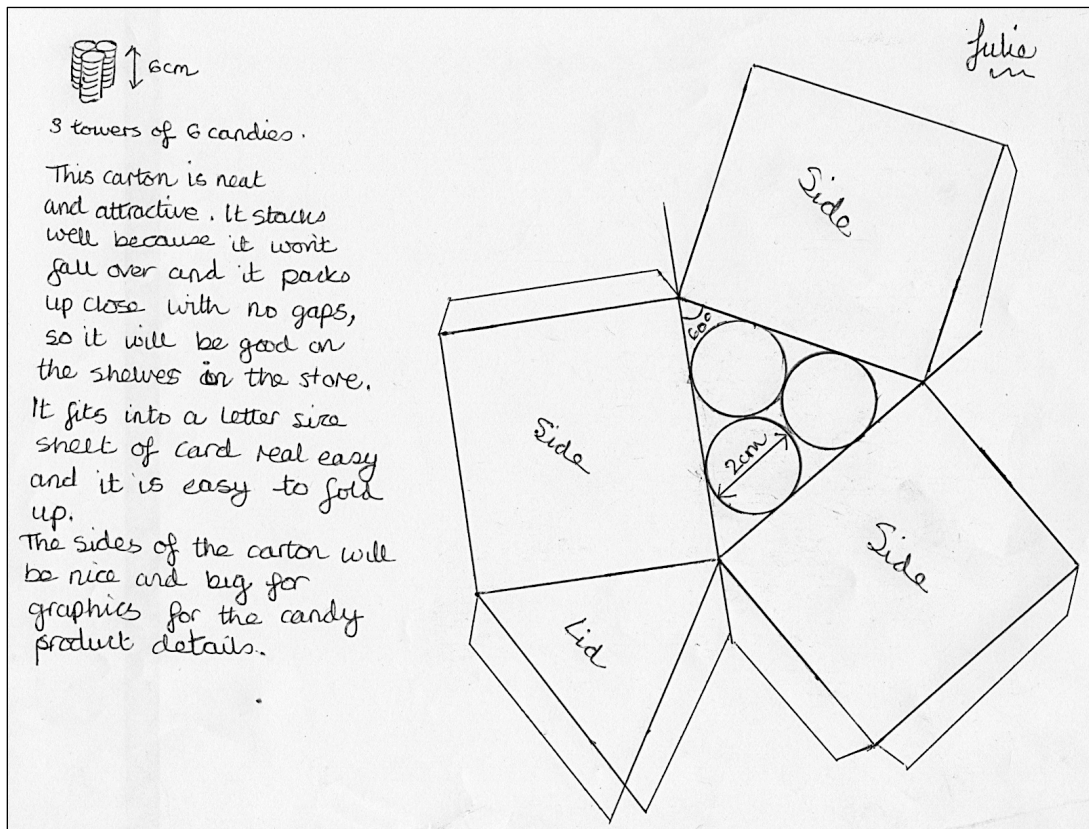 Julia
6cm
3 towers of 6 candies.
This carton is neat
and attractive. It stacks
well because it won't
fall over and it packs
up close with no gaps,
so it will be good on
the shelves in the store.
It fits into a letter size
sheet of card real easy
and it is easy to fold
up.
The sides of the carton will
be nice and big for
graphics for the candy
product details.
Side
60°
Side
2cm
Side
Lid